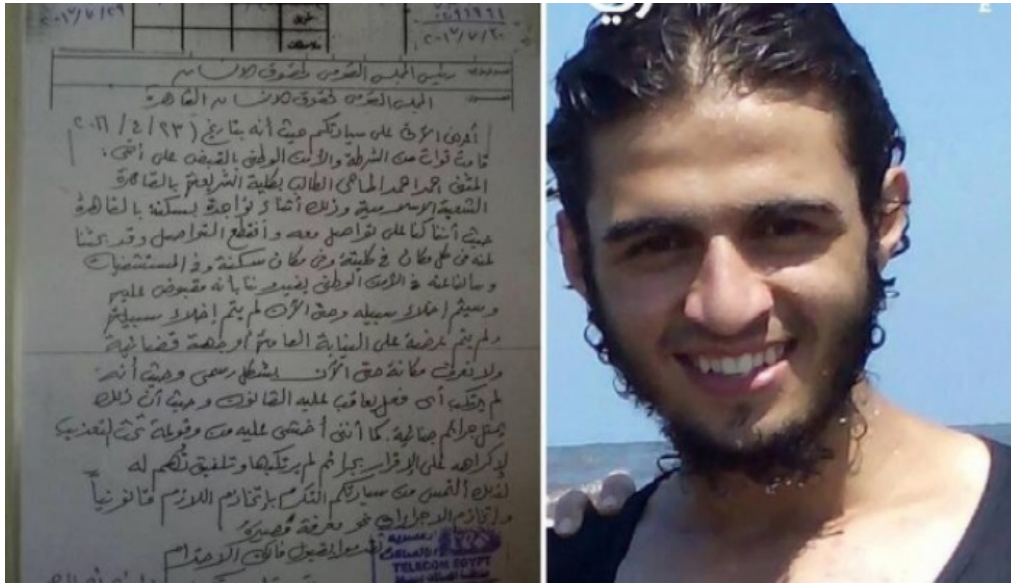 ٢٠١٦/٧/٢٠
رئيس المجلس القومى لحقوق الانسان
المجلس القومى لحقوق الانسان القاهرة
أعرض الآتى على سيادتكم حيث أنه بتاريخ (٢٣/٤/٢٠١٦
قامت قوات من الشرطة والأمن الوطنى بالقبض على أخى:
أحمد الماحى الطالب بكلية الشريعة بالقاهرة
الشعبة الاسلامية وذلك أثناء تواجدة بسكنه بالقاهرة
حيث أننا كنا على تواصل معه وأنقطع التواصل وقد بحثنا
عنه فى كل مكان فى كليته وفى مكان سكنة وفى المستشفيات
وسألنا عنه فى الأمن الوطنى بأنه مقبوض عليه
وسيتم إخلاء سبيله وحتى الآن لم يتم إخلاء سبيله
ولم يتم عرضة على النيابة العامة أو جهة قضائية
ولا نعرف مكانة حتى الآن بشكل رسمى وحيث أنه
لم يرتكب أى فعل يعاقب عليه القانون وحيث أن ذلك
يمثل جرائم جنائية. كما أننى أخشى عليه من وقوعة تحت التعذيب
لإكراهه على الاقرار بجرائم لم يرتكبها وتلفيق تهم له
لذلك ألتمس من سيادتكم التكرم بإتخاذ اللازم قانونياً
وإتخاذ الاجراءات نحو معرفة مصيرة
وتفضلوا بقبول فائق الاحترام
TELECOM EGYPT